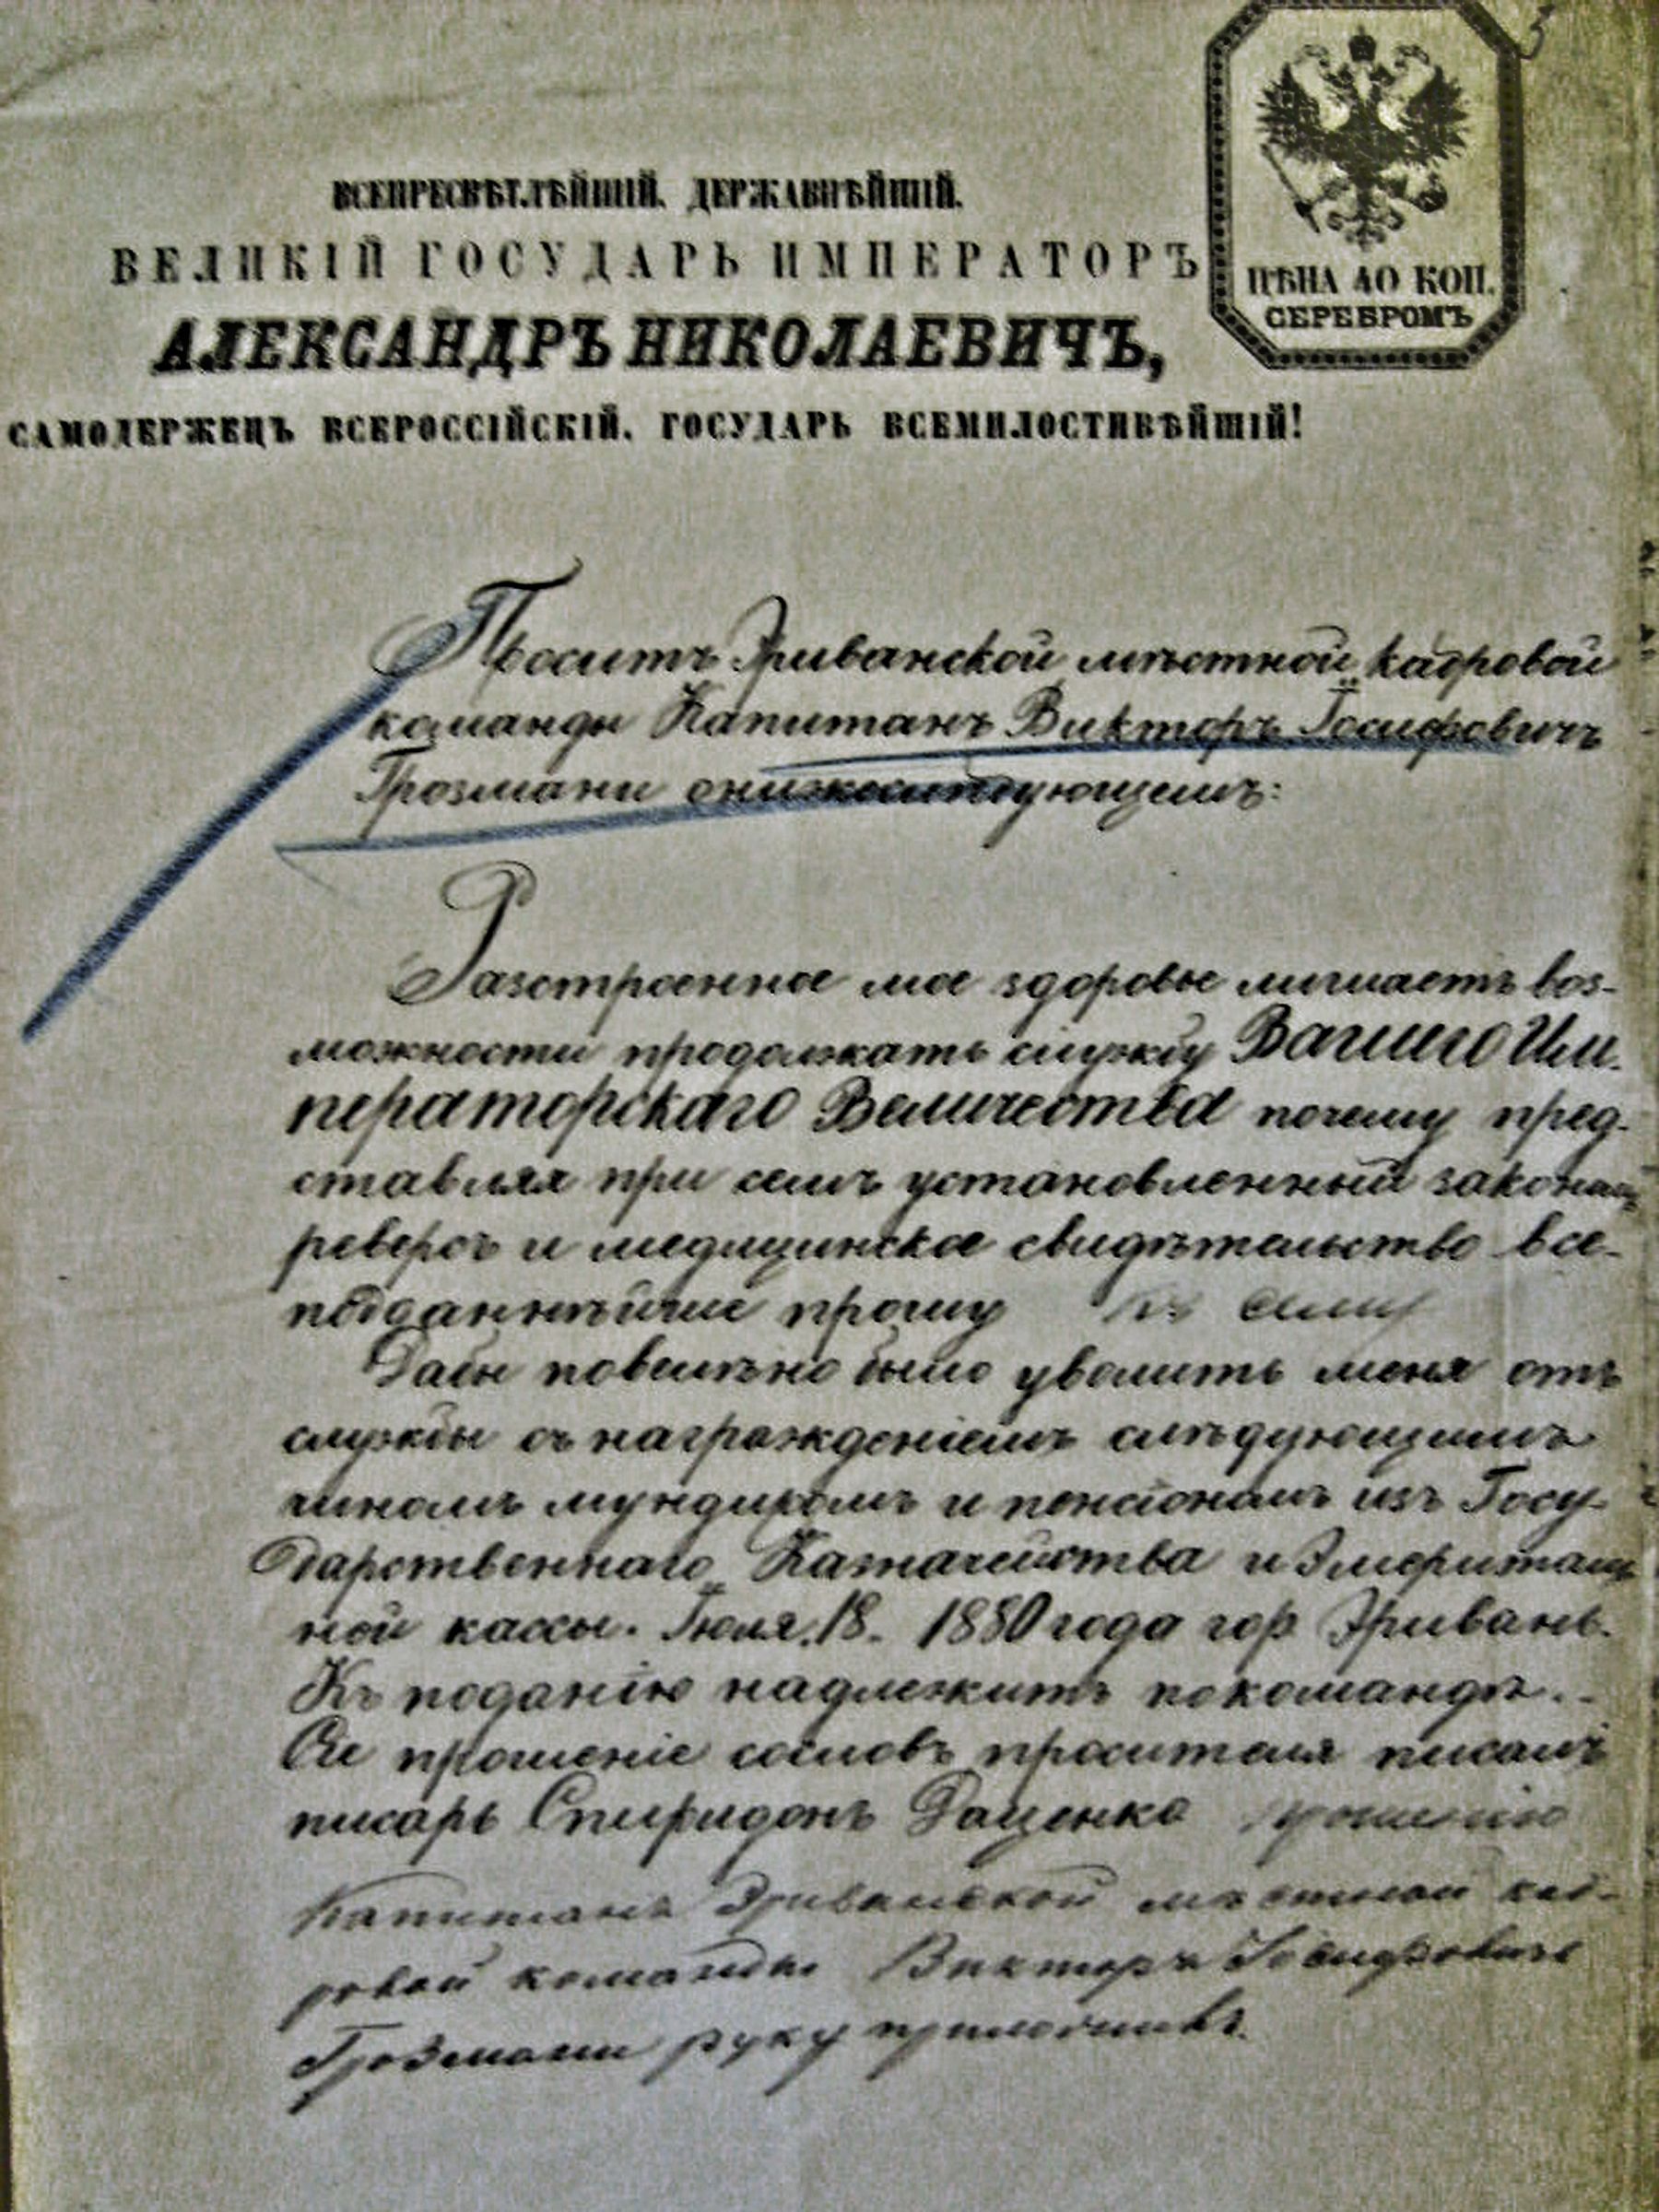 ВСЕПРЕСВѢТЛѢЙШІЙ, ДЕРЖАВНѢЙШІЙ,
ВЕЛИКІЙ ГОСУДАРЬ ИМПЕРАТОРЪ
АЛЕКСАНДРЪ НИКОЛАЕВИЧЪ,
САМОДЕРЖЕЦЪ ВСЕРОССІЙСКІЙ, ГОСУДАРЬ ВСЕМИЛОСТИВѢЙШІЙ!
ЦѢНА 40 КОП.
СЕРЕБРОМЪ
Проситъ Эриванской мѣстной кадровой
команды Капитанъ Викторъ Іосифовичъ
Грозмани онижеслѣдующемъ:
Разстроенное мое здоровье лишаетъ воз-
можности продолжать службу Вашего Им-
ператорскаго Величества почему пред-
ставляя при семъ установленный закономъ
реверсъ и медицинское свидѣтельство все-
подданнѣйше прошу Къ сему
Дабы повелѣно было уволить меня отъ
службы съ награжденіемъ слѣдующимъ
чиномъ мундиромъ и пенсіономъ изъ Госу-
дарственнаго Казначейства и Эмериталь
ной кассы. Іюля 18. 1880 года гор Эривань.
Къ поданію надлежитъ по командѣ.
Сіе прошеніе сословъ просителя писалъ
писарь Спиридонъ Даценко прошенію
Капитанъ Эриванской мѣстной кад-
ровой команды Викторъ Іосифовичъ
Грозмани руку приложилъ.